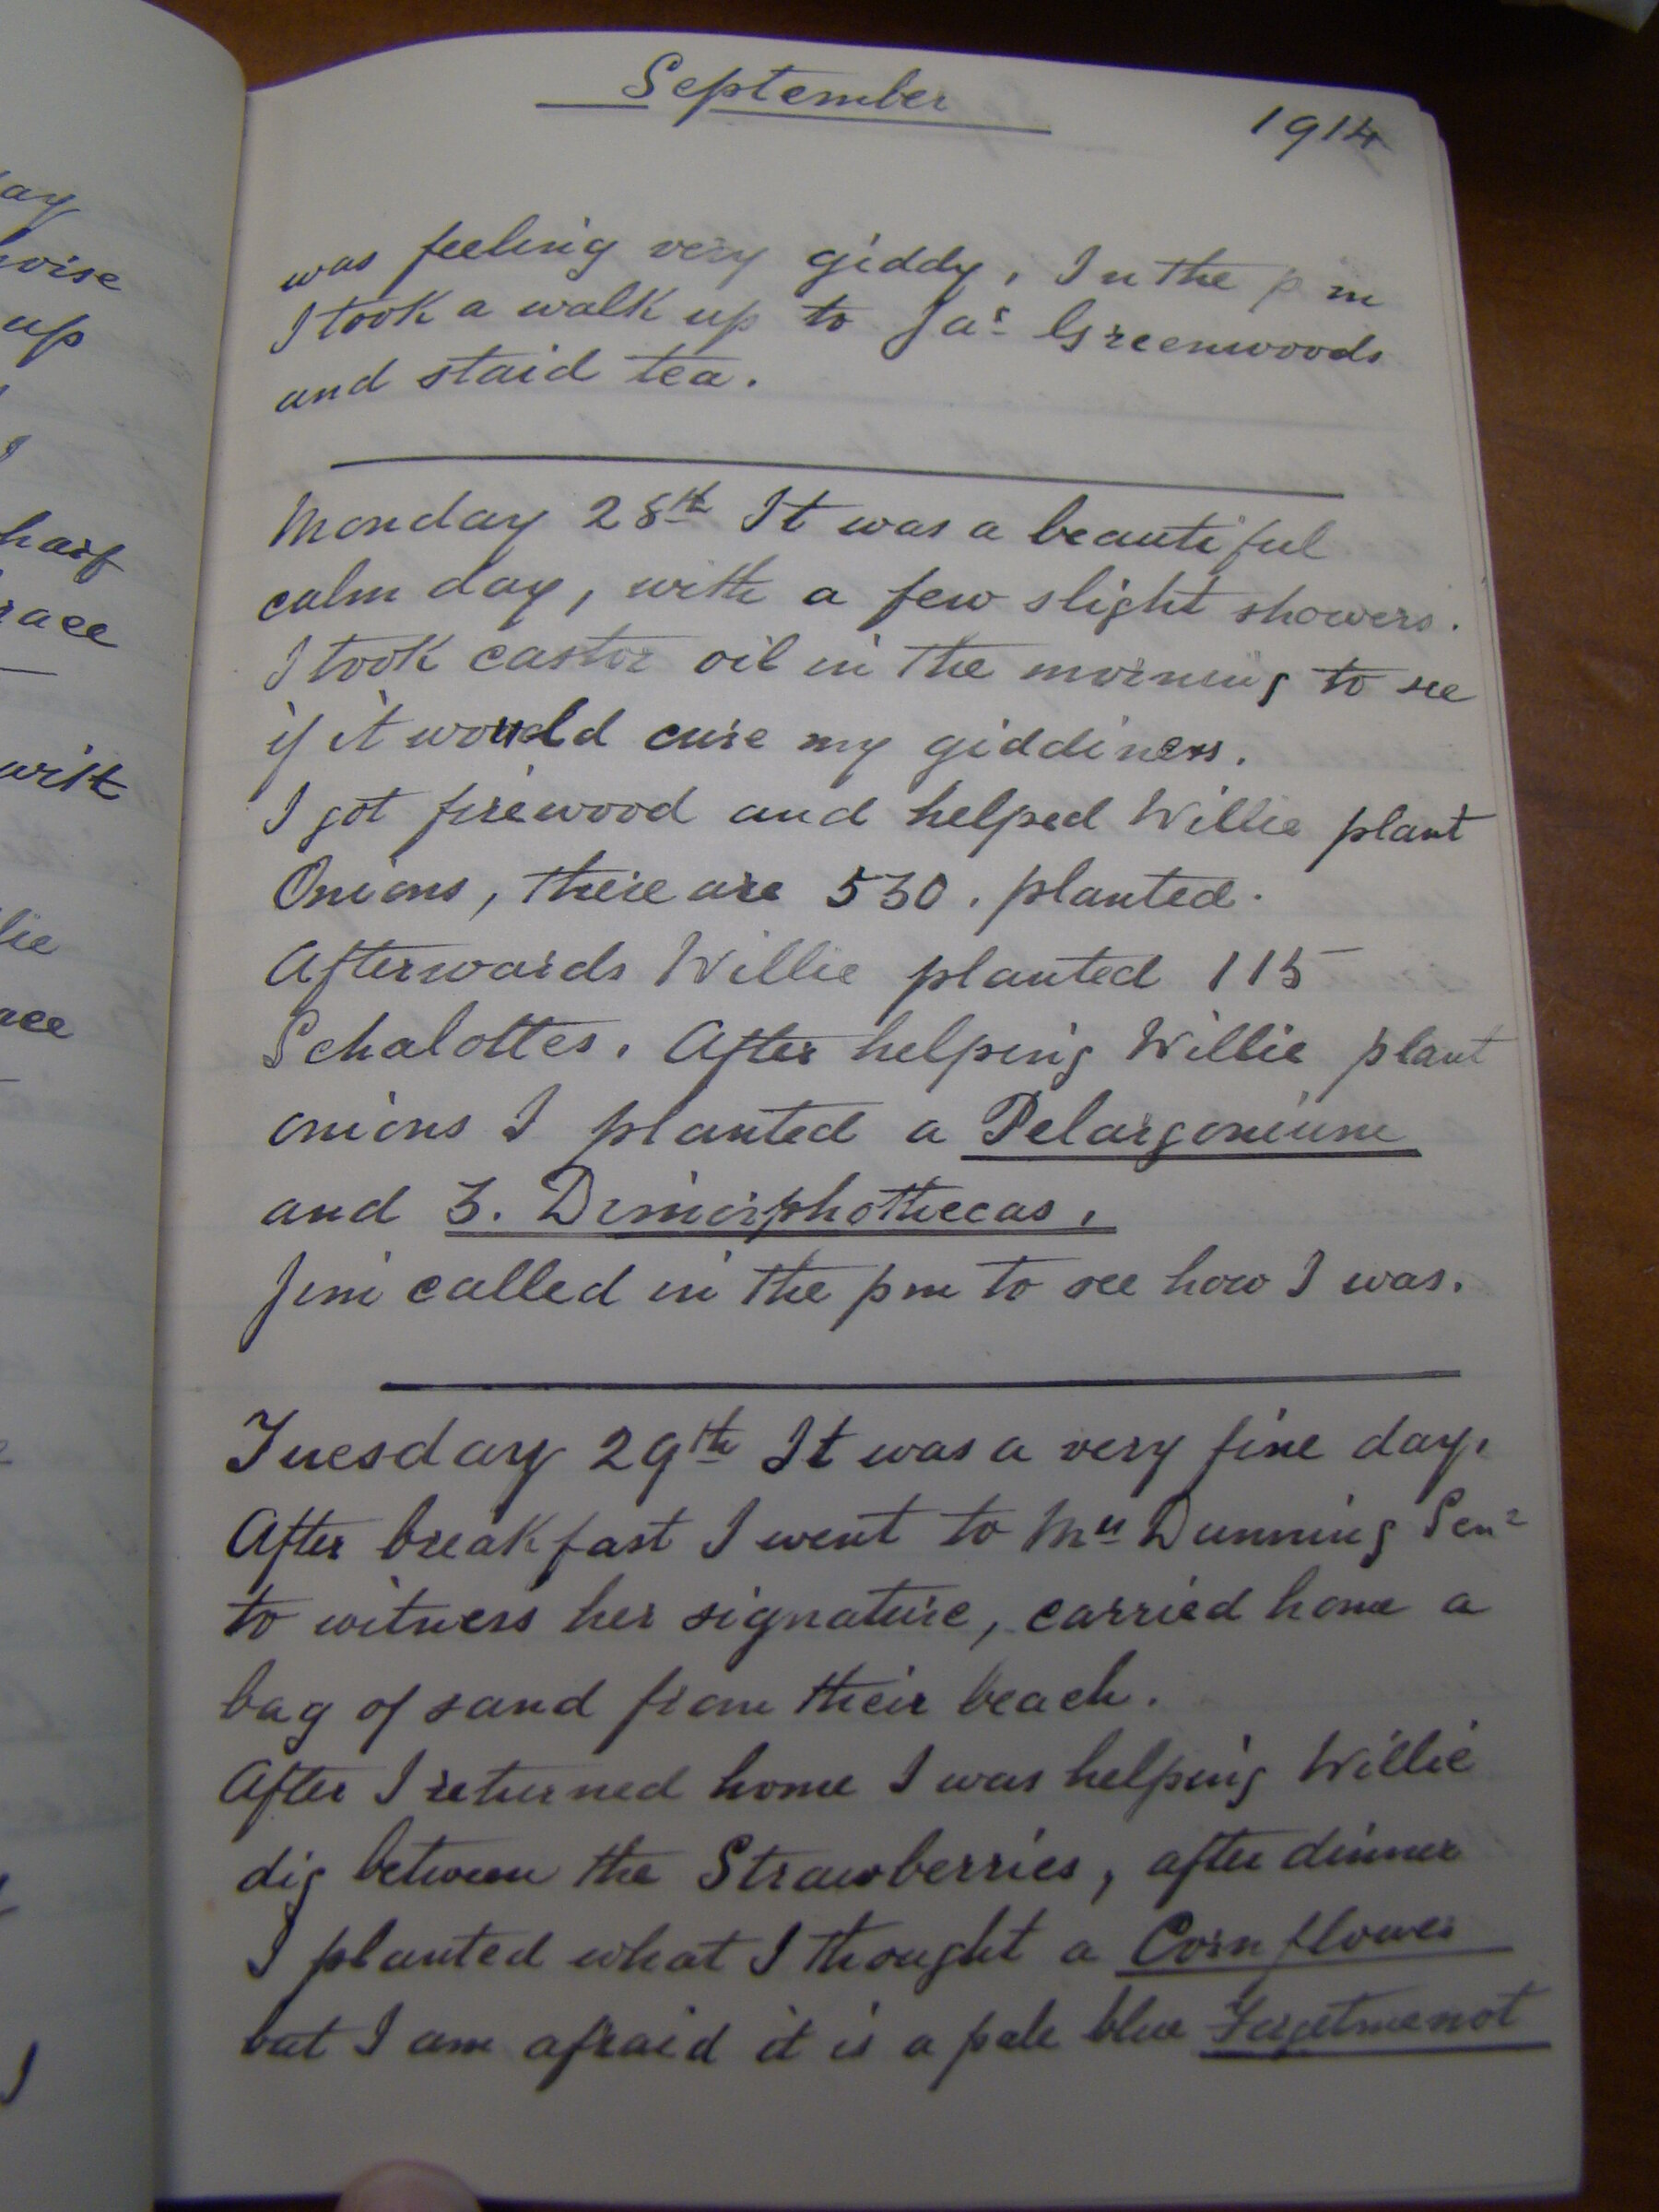 September
1914
was feeling very giddy, In the pm
I took a walk up to Jas Greenwoods
and staid tea.
Monday 28th It was a beautiful
calm day, with a few slight showers.
I took castor oil in the morning to see
if it would cure my giddiness.
I got firewood and helped Willie plant
Onions, there are 530. planted.
Afterwards Willie planted 115
Schalottes. After helping Willie plant
onions I planted a Pelargonium
and 3. Dimorphothecas.
Jim called in the pm to see how I was.
Tuesday 29th It was a very fine day.
After breakfast I went to Mrs Dunning Senr
to witness her signature, carried home a
bag of sand from their beach.
After I returned home I was helping Willie
dig between the Strawberries, after dinner
I planted what I thought a Cornflower
but I am afraid it is a pale blue Forgetmenot
ay
up
half
with